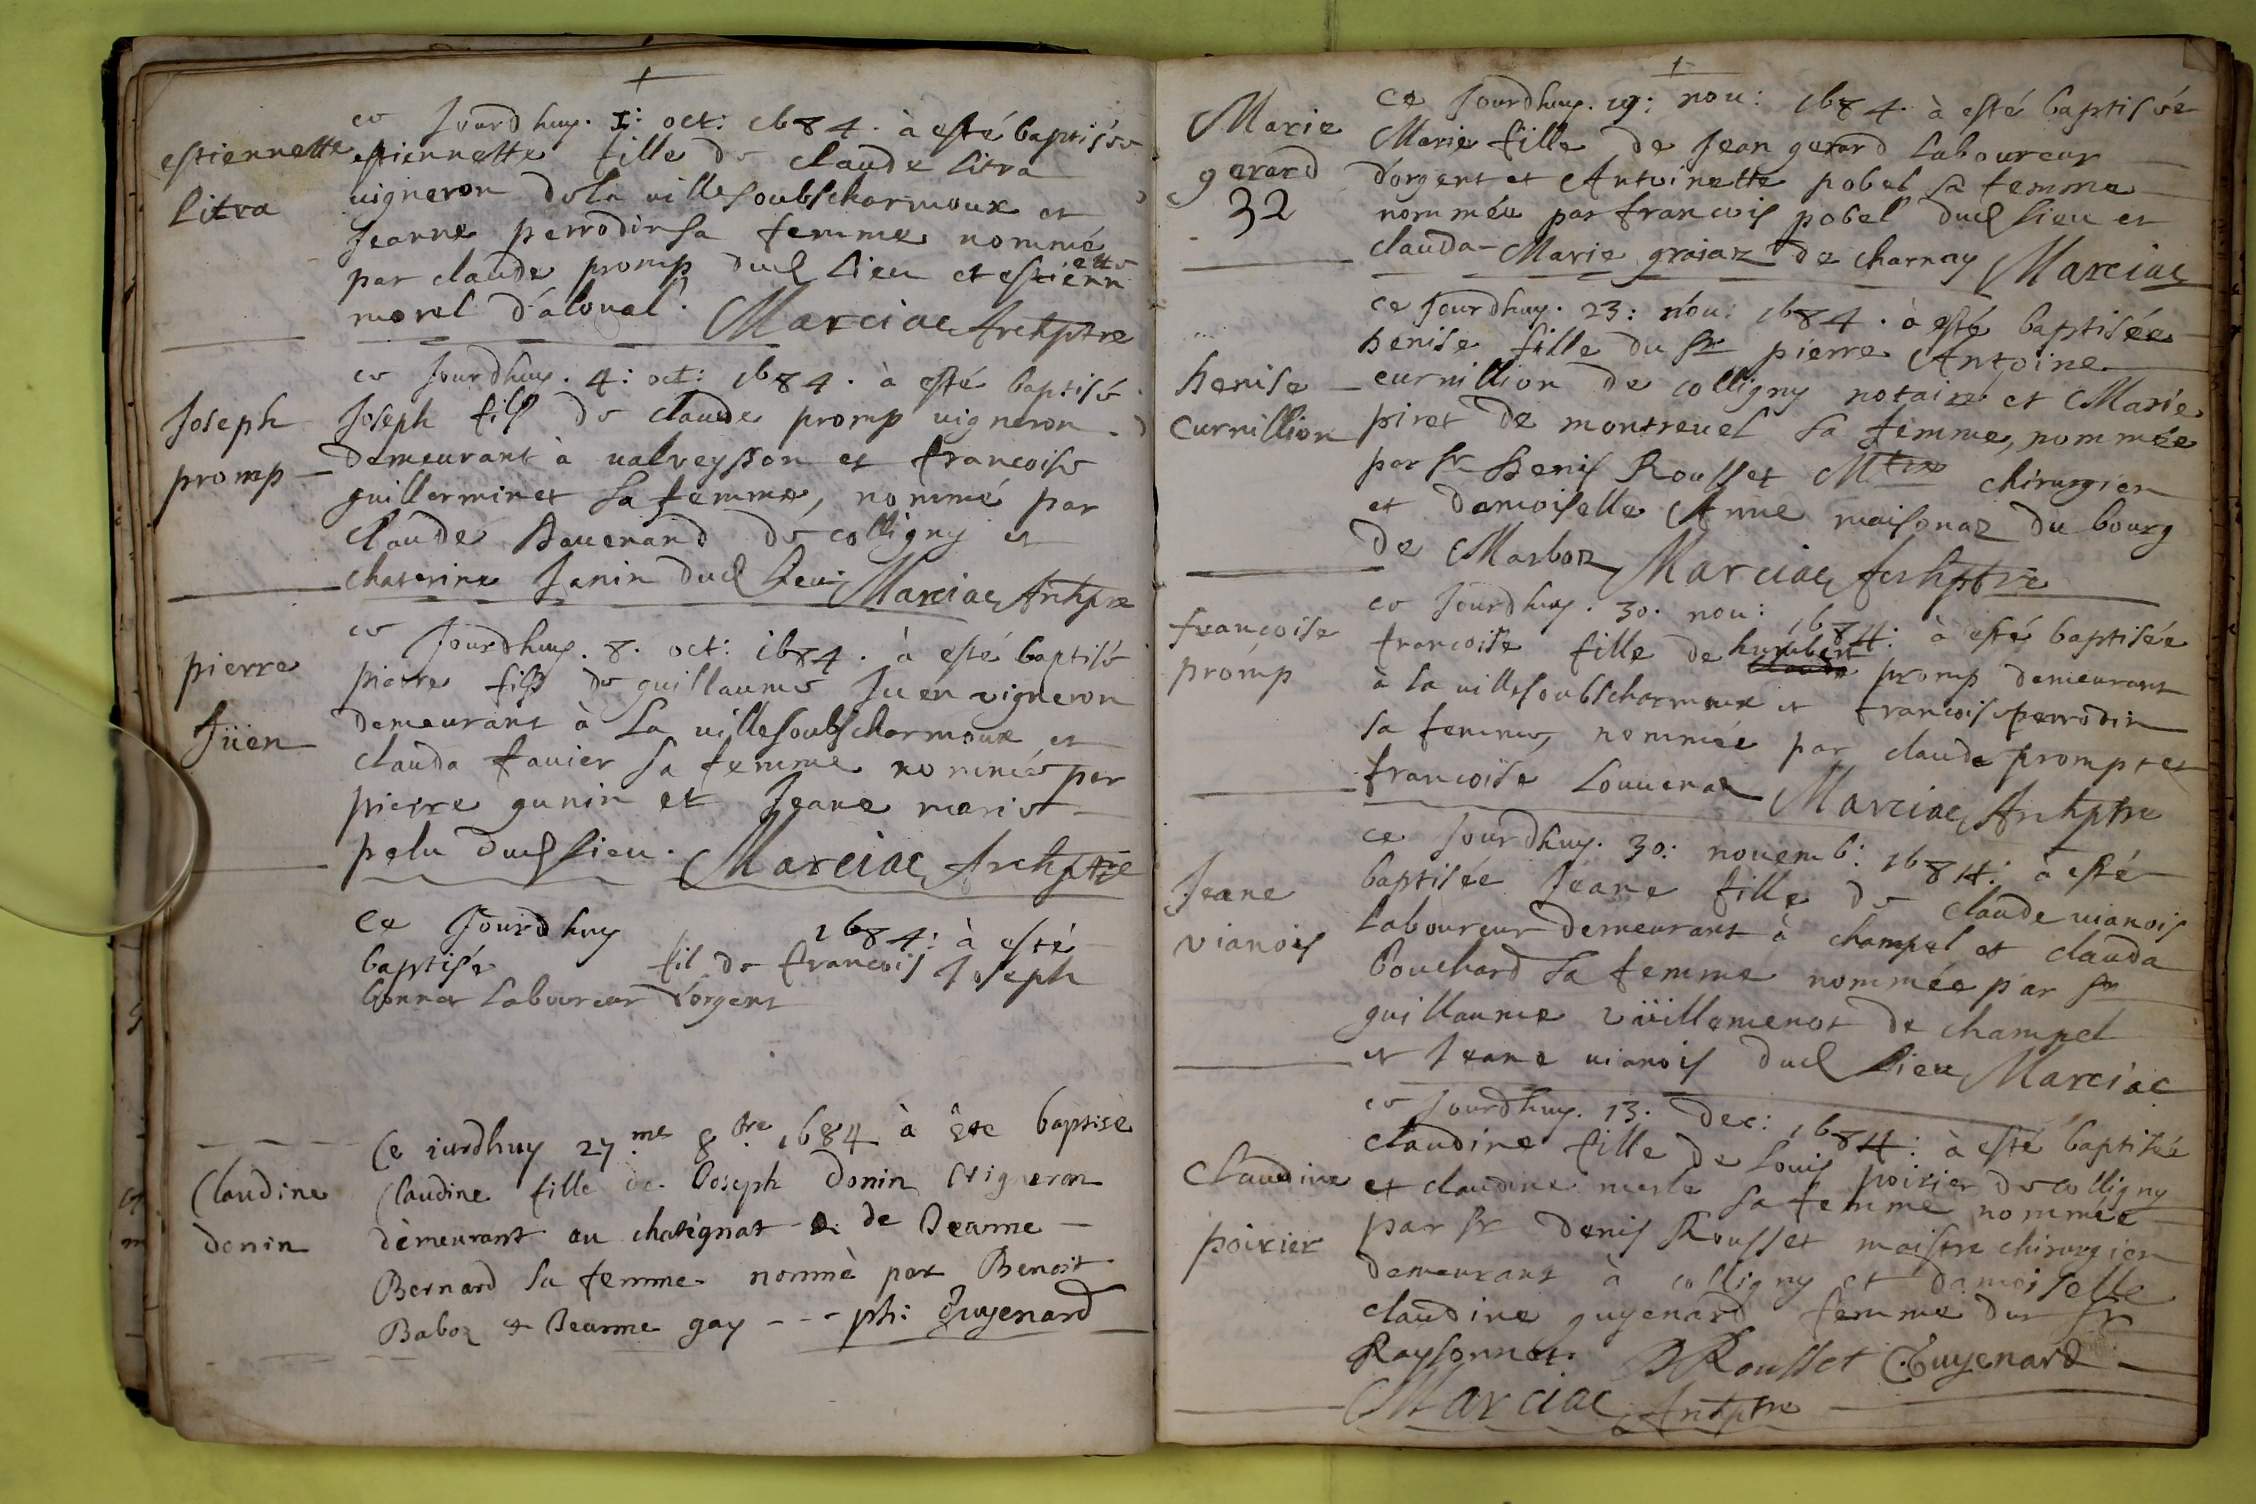 estiennette
Litra
ce Jourdhuy. 1: oct: 1684. à esté baptisée
estiennette fille de Claude Litra
vigneron dela villesoubscharmoux et
Jeanne perrodin sa femme nommé
par claude promp dud lieu et estiennette
morel d'aloual. Marciac Archptre
Joseph
promp
ce Jourdhuy. 4: oct: 1684. à esté baptisé
Joseph fils de claude promp vigneron
demeurant à valveysson et francoise
guillerminet sa femme, nommé par
Claude Bavenard de colligny et
chaterine Janin dud lieu Marciac Archptre
pierre
Jüen
ce Jourdhuy. 8. oct: 1684. à esté baptisé
pierre fils de guillaume Juen vigneron
demeurant à La villesoubscharmoux et
clauda favier sa femme nommé par
pierre gunin et Jeane marie
pelu dud lieu. Marciac Archptre
Ce Jourdhuy 1684: à esté
baptisé fil de francois Joseph
bonnet Laboureur d'orgent
Claudine
donin
Ce iurdhuy 27.me 8.bre 1684 à ête baptisè
Claudine fille de Joseph donin Vigneron
dèmeurant au chatègnat & de Jeanne
Bernard sa femme nommè par Benoit
Baboz & Jeanne gay - - - ph: Guyenard
Marie
gerard
32
Ce Jourdhuy. 19: nou: 1684. à esté baptisée
Marie fille de Jean gerard Laboureur
d'orgent et Antoinette pobel sa femme
nommée par francois pobel dud lieu et
clauda-Marie graiaz de charnay Marciac
Denise
Curnillion
ce Jourdhuy. 23: nou: 1684. à esté baptisée
Denise fille du Sr pierre Antoine
curnillion de colligny notaire et Marie
piret de montrevel sa femme, nommée
par Sr Denis Rousset Mtre chirurgien
et damoiselle Anne maisonaz du bourg
de Marboz Marciac Archptre
francoise
promp
ce Jourdhuy. 30. nou: 1684: à esté baptisée
francoise fille de humbert claude promp demeurant
à la villesoubscharmoux et francoise perrodin
sa femme, nommée par claude promp et
francoise Louvenaz Marciac Archptre
Jeane
vianois
ce Jourdhuy. 30: novemb: 1684: à esté
baptisée Jeane fille de claude vianois
Laboureur demeurant à champel et clauda
bouchard sa femme nommée par Sr
guillaume vüillemenot de champel
et Jeane vianois dud lieu Marciac
Claudine
poirier
ce Jourdhuy. 13. dec: 1684: à esté baptisée
claudine fille de Louis poirier de colligny
et claudine merle sa femme nommée
par Sr denis Rousset maistre chirurgien
demeurant à colligny et damoiselle
claudine guyenard femme du Sr
Raysonnet. D Rousset C Guyenard
Marciac Archptre